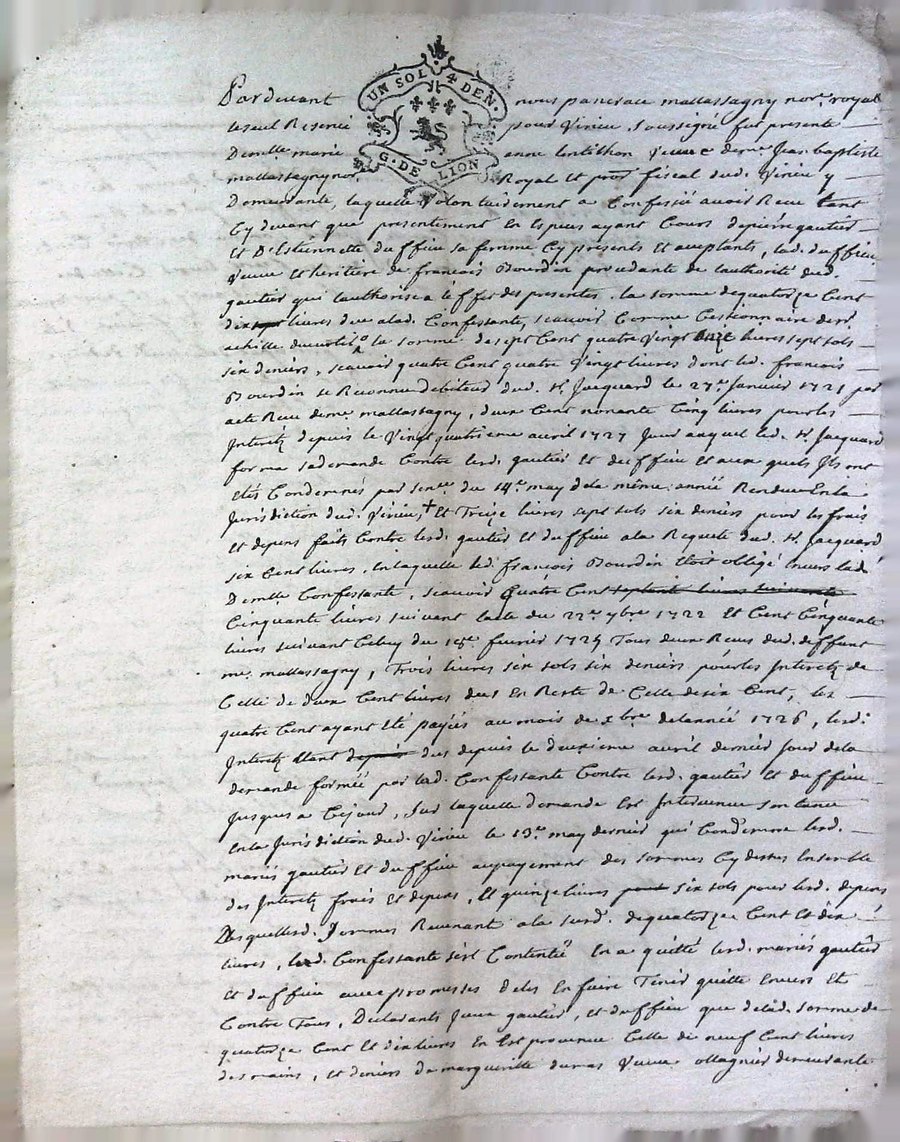 UN SOL 4 DEN.
G. DE LION
Pardevant nous pancrace mallassagny nore. royal
le seul Reservé pour Virieu, soussigné fut presente
Demlle. marie anne Lentilhon veuve de me. Jean baptiste
mallassagny nore. Royal et procr. fiscal dud. Virieu y
Demeurante, laquelle volontairement a Confessé avoir Receu tant
Cy devant que presentement En Especes ayant Cours de pierre gautier
et D'Estiennette duffieu sa femme Cy presents et aceptants, lad. duffieu
veuve et heritiere de francois Bourdin procedante de l'authorité dud.
gautier qui l'authorise a l'effet des presentes. la somme de quatorze Cent
dix livres due a lad. Confessante, scavoir Comme Cessionnaire de sr.
achille la somme de sept Cent quatre vingt onze livres sept sols
six deniers, scavoir quatre Cent quatre vingt livres dont led. francois
Bourdin se Reconnu debiteur dud. sr. Jacquard le 27e. Janvier 1721 par
acte Receu de me mallassagny, deux Cent nonante Cinq livres pour les
Interetz depuis le vingt quatrieme avril 1727 Jour auquel led. sr. Jacquard
forma sa demande Contre lesd. gautier et duffieu et aux quels Ils ont
etés Condemnés par sence. du 14e. may de la même année Rendue En la
Jurisdiction dud. Virieu, + et Treize livres sept sols six deniers pour les frais
et depens faits Contre lesd. gautier et duffieu a la Requete dud. sr. Jacquard
six Cent livres, en laquelle led. francois Bourdin etoit obligé envers lad.
Demlle. Confessante, scavoir quatre Cent
Cinquante livres suivant l'acte du 22e. 7bre. 1722 et Cent Cinquante
livres suivant Celuy du 18e. fevrier 1725 Tous deux Receus dud. deffunt
me. mallassagny, Trois livres six sols six deniers pour les Interetz de
Celle de deux Cent livres deus En Reste de Celle de six Cent, les
quatre Cent ayant eté payées au mois de xbre. de l'année 1726, lesd.
Interetz etant dus depuis le deuxieme avril dernier Jour de la
demande formée par lad. Confessante Contre lesd. gautier et duffieu
Jusques a Cejour, sur laquelle demande Est Intervenue sentance
en la Jurisdiction dud. Virieu le 13e. may dernier qui Condemne lesd.
mariés gautier et duffieu au payement des sommes Cy dessus Ensemble
des Interetz frais et depens, et quinze livres six sols pour lesd. depens
Desquelles d. sommes Revenant a la susd. de quatorze Cent et dix
livres, lad. Confessante s'est Contentée en a quitté lesd. mariés gautier
et duffieu avec promesses de les En faire Tenir quitte envers et
Contre Tous, Declarants Iceux gautier, et duffieu que de lad. somme de
quatorze Cent et dix livres En Est provenue Celle de neuf Cent livres
des mains, et deniers de marguerite dumas veuve ollagnier demeurante